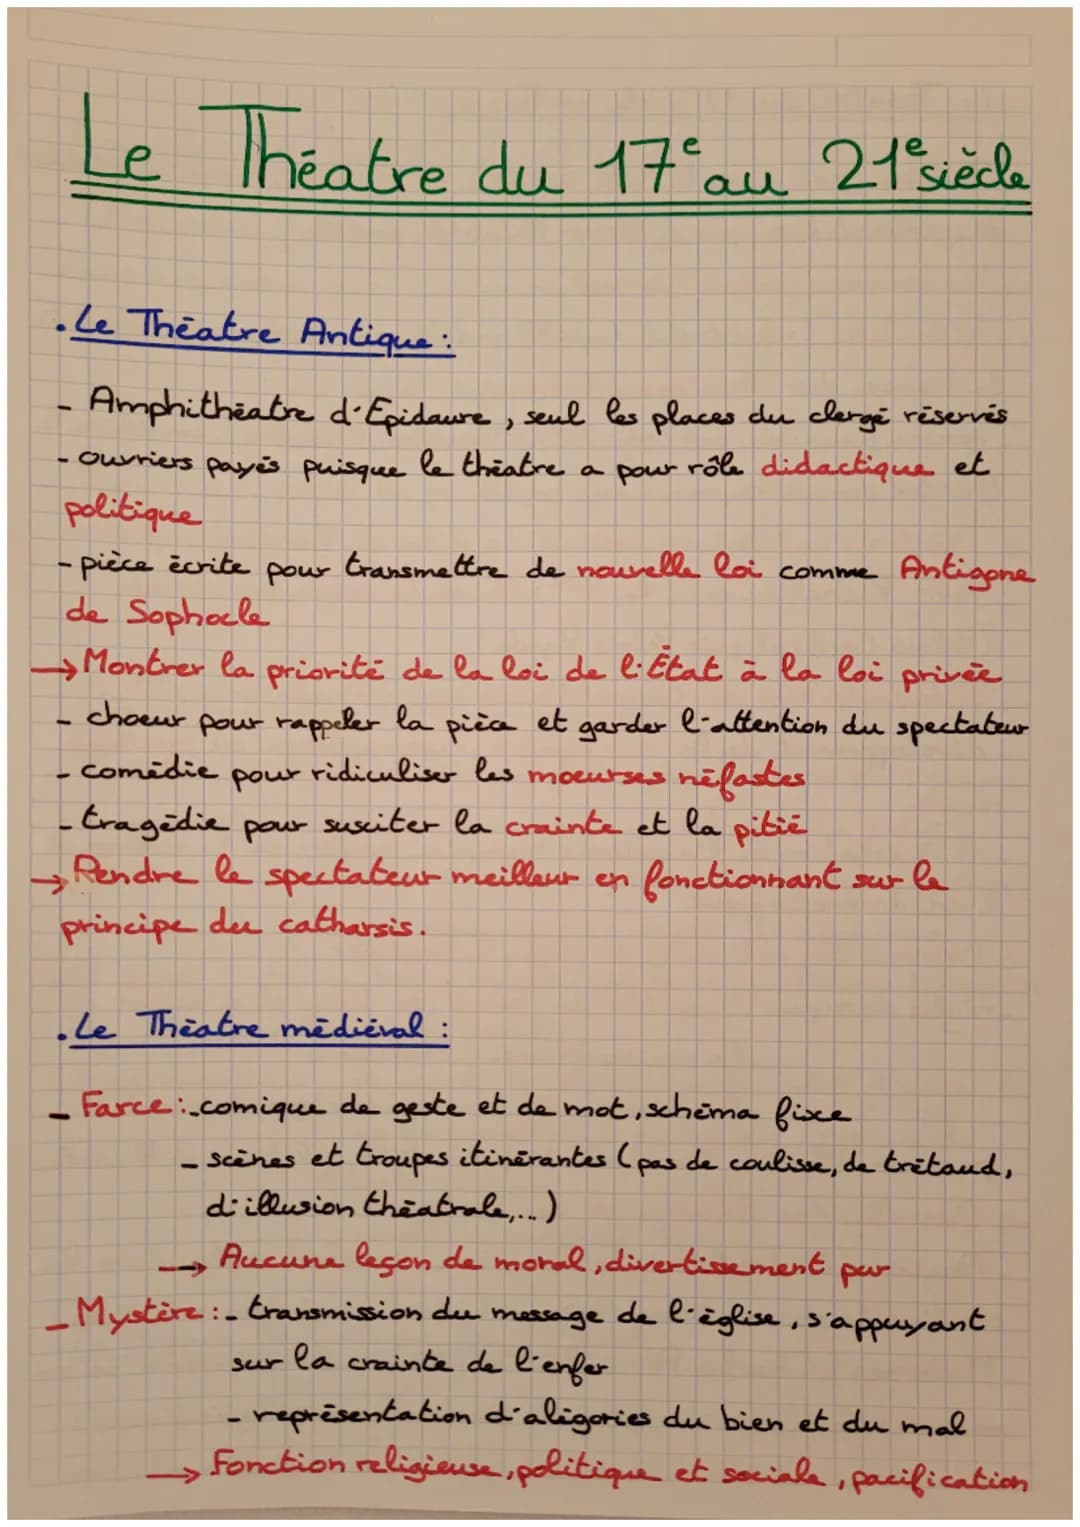 Le Théatre du 17e au 21e siècle
. Le Théatre Antique :
- Amphithéatre d'Epidaure, seul les places du clergé réservés
- ouvriers payés puisque le théatre a pour rôle didactique et
politique
- pièce écrite pour transmettre de nouvelle loi comme Antigone
de Sophocle
→ Montrer la priorité de la loi de l'État à la loi privée
- choeur pour rappeler la pièce et garder l'attention du spectateur
- comédie pour ridiculiser les moeurses néfastes
- tragédie pour susciter la crainte et la pitié
→ Rendre le spectateur meilleur en fonctionnant sur le
principe du catharsis.
. Le Théatre médiéval :
- Farce : - comique de geste et de mot, schéma fixe
- scènes et troupes itinérantes (pas de coulisse, de trétaud,
d'illusion théatrale,...)
→ Aucune leçon de moral, divertissement pur
- Mystère : - transmission du message de l'église, s'appuyant
sur la crainte de l'enfer
- représentation d'alégories du bien et du mal
→ Fonction religieuse, politique et sociale, pacification